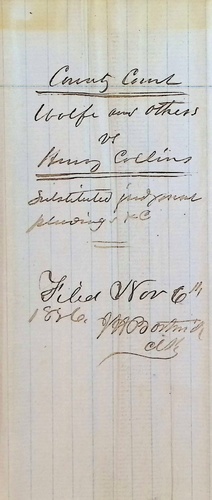 County Court
Wolfe and others
vs
Henry Collins
Substituted judgment
pleadings &C
Filed Nov 6th
J H Bostwick
clk